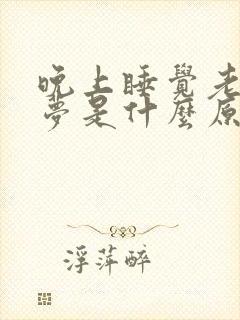 晚上睡覺老
夢是什麼原
浮萍醉